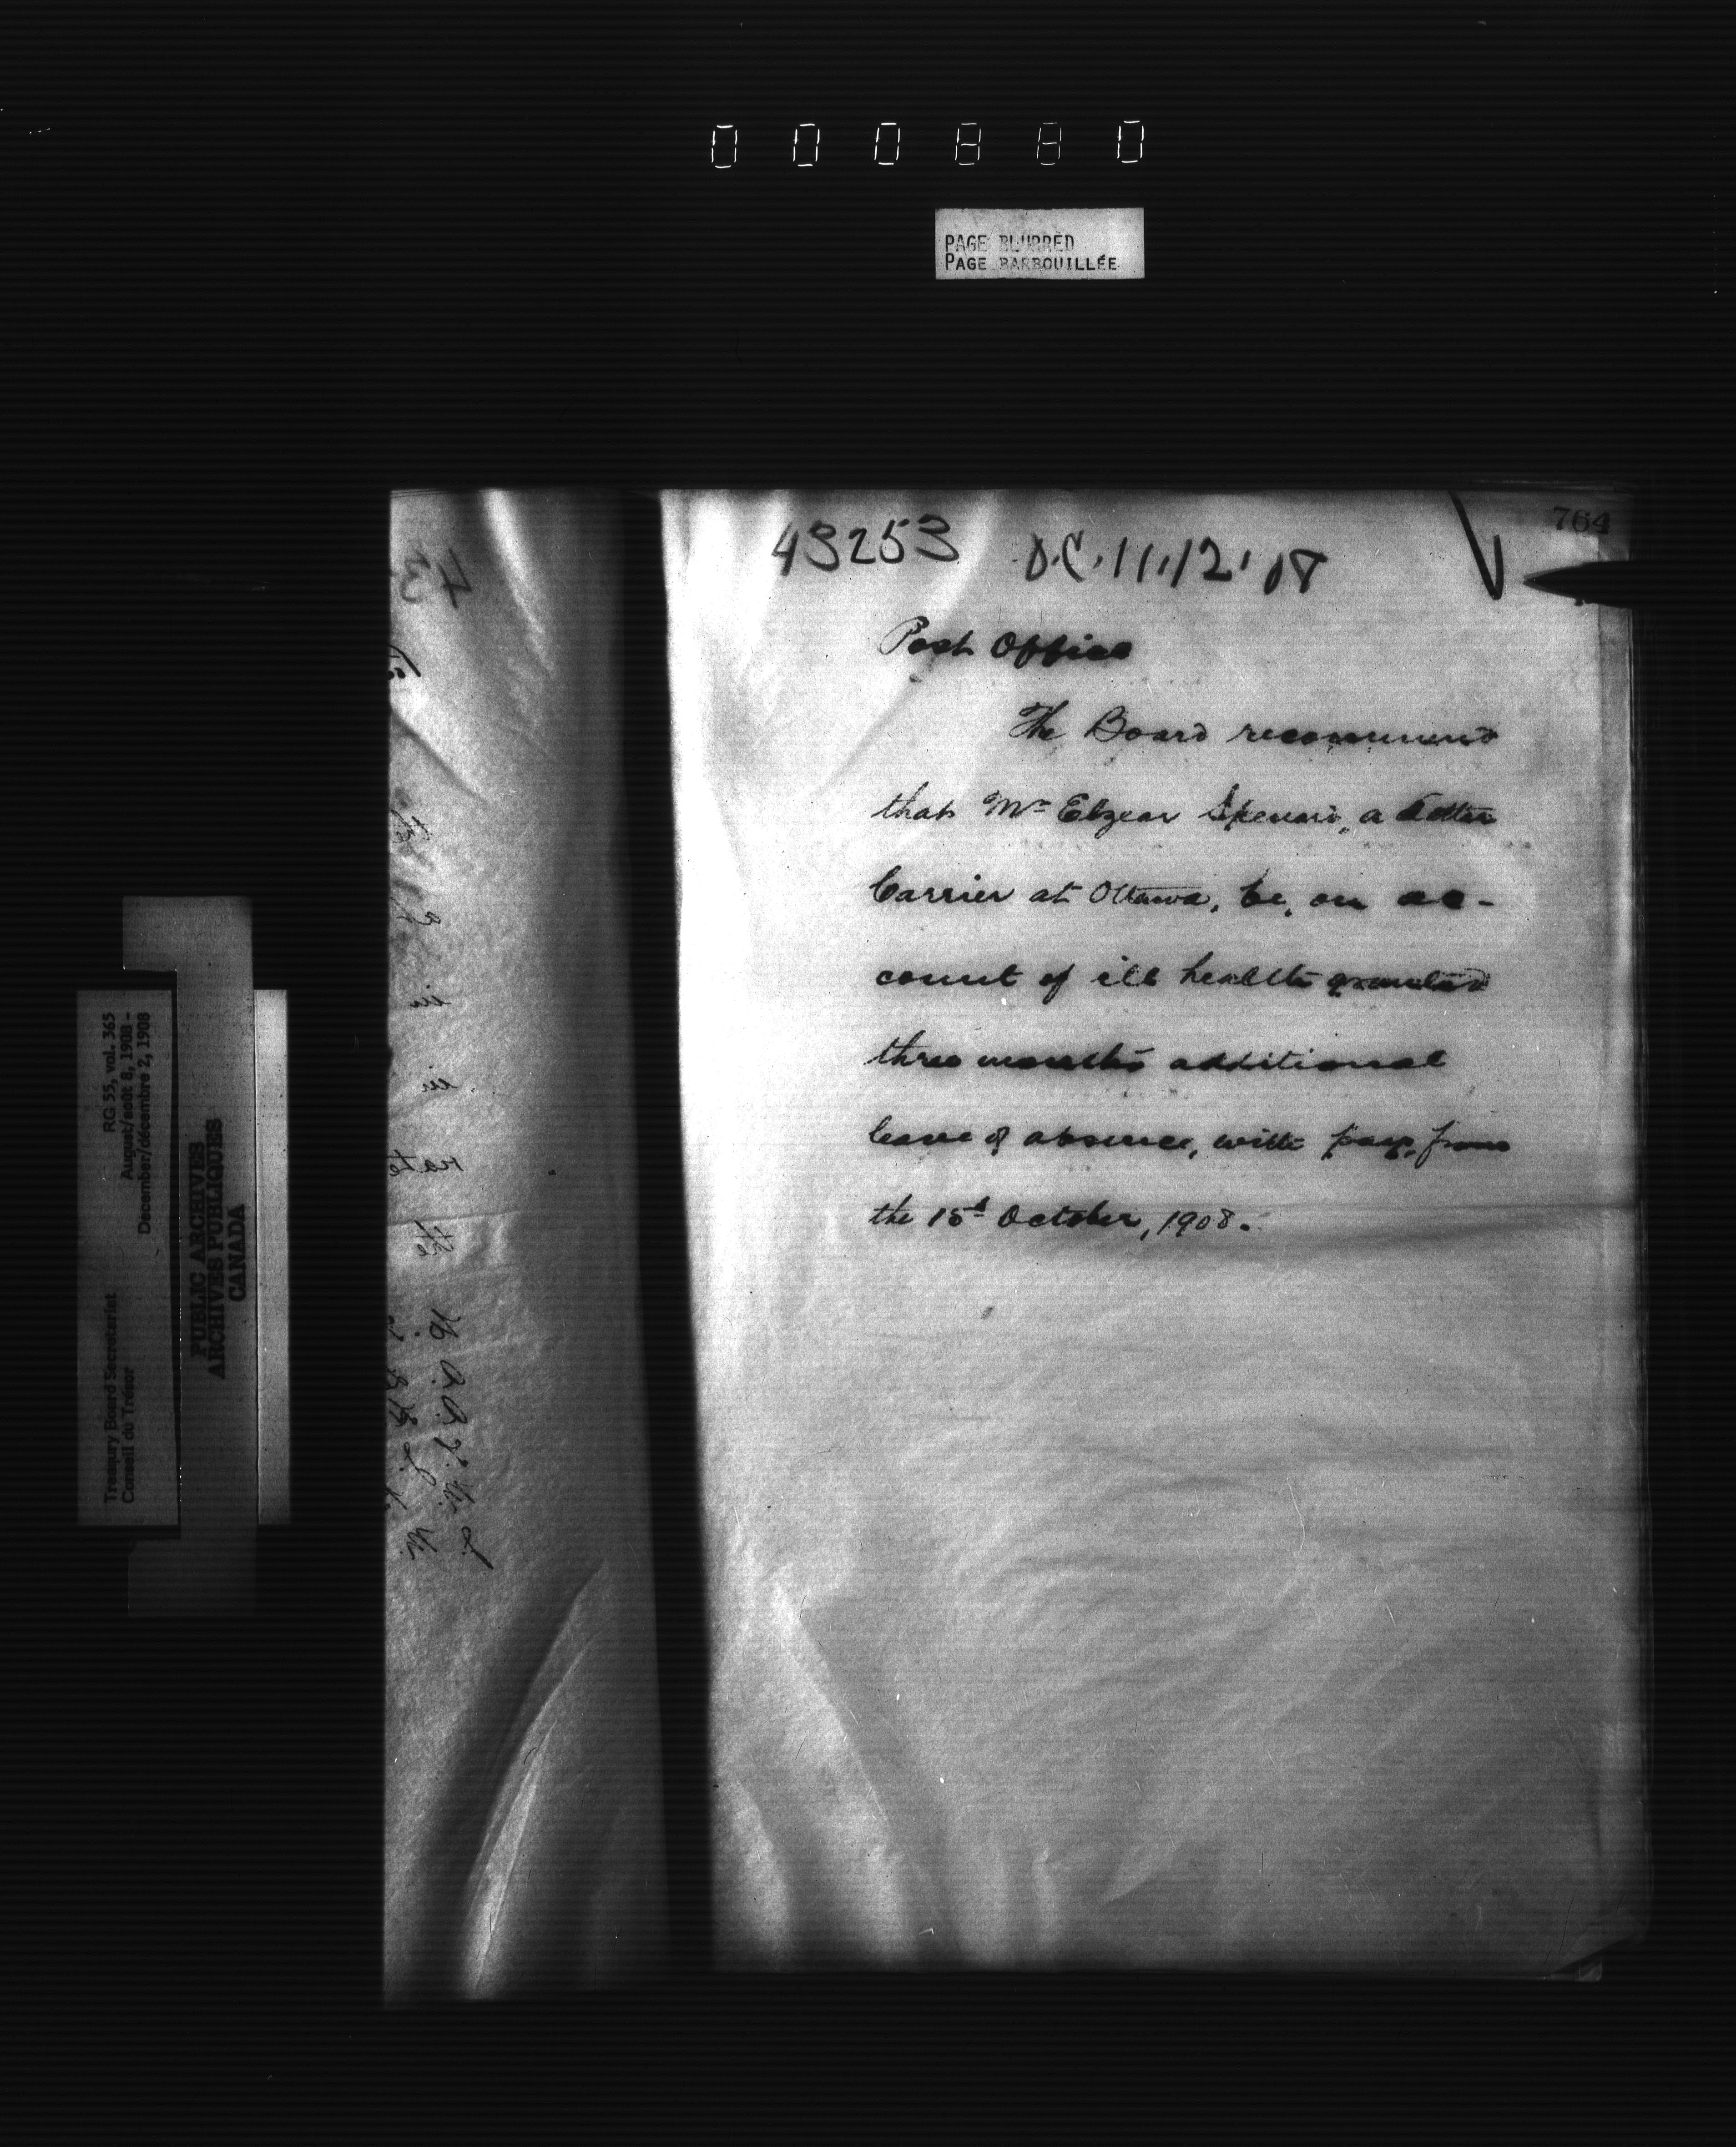 000880
PAGE BLURRED
PAGE BARBOUILLÉE
764
43253 O.C. 11/12/08
Post Office
The Board recommend
that Mr Elzear Spenard, a Letter
Carrier at Ottawa, be, on ac-
count of ill health granted
three months additional
leave of absence, with pay, from
the 15th October, 1908.
RG 55, vol. 365
August/août 8, 1908 -
December/décembre 2, 1908
Treasury Board Secretariat
Conseil du Trésor
PUBLIC ARCHIVES
ARCHIVES PUBLIQUES
CANADA